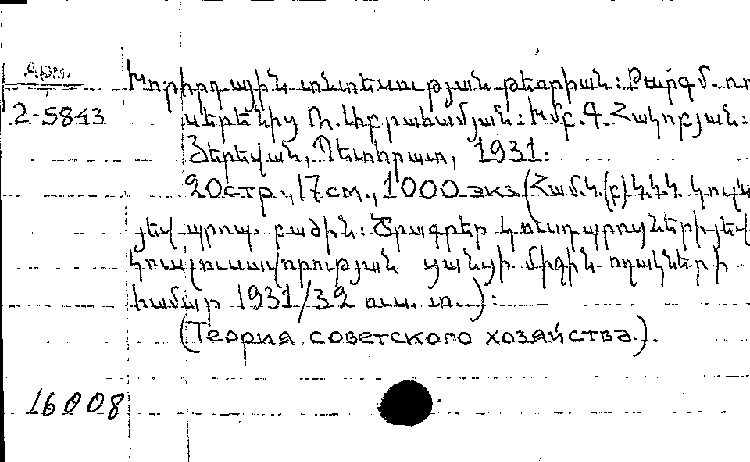 Арм.
2-5843
Խորհրդային տնտեսության թեորիան: Թարգմ. ռու
սերենից Ռ. Աբրահամյան: Խմբ. Գ. Հակոբյան:
Յերեվան, Պետհրատ, 1931.
20стр., 17см., 1000 экз. (Համ.Կ.(բ)Կ.Կ.Կ. կուլտ
յեվ պրոպ. բաժին: Ծրագրեր կուսդպրոցների յեվ
կուսլուսավորության ցանցի միջին ողակների
համար 1931/32 ուս. տ.):
(Теория советского хозяйства.).
16008